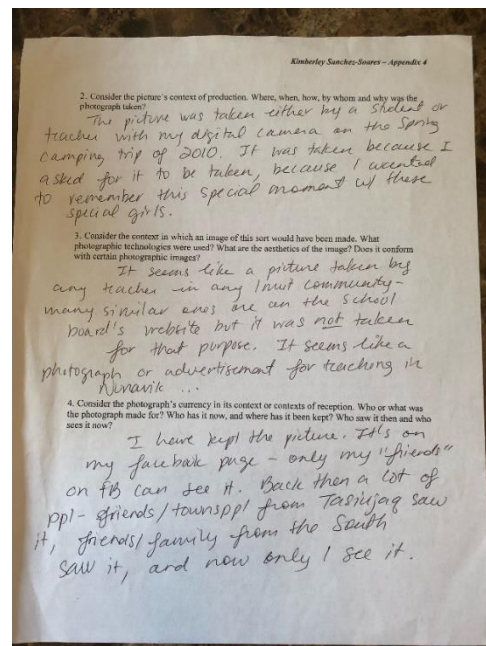 Kimberley Sanchez-Soares – Appendix 4
2. Consider the picture's context of production. Where, when, how, by whom and why was the
photograph taken?
The picture was taken either by a student or
teacher with my digital camera on the Spring
Camping trip of 2010. It was taken because I
asked for it to be taken, because I wanted
to remember this special moment w/ these
special girls.
3. Consider the context in which an image of this sort would have been made. What
photographic technologies were used? What are the aesthetics of the image? Does it conform
with certain photographic images?
It seems like a picture taken by
any teacher in any Inuit community-
many similar ones are on the school
board's website but it was not taken
for that purpose. It seems like a
photograph or advertisement for teaching in
Nunavik ...
4. Consider the photograph's currency in its context or contexts of reception. Who or what was
the photograph made for? Who has it now, and where has it been kept? Who saw it then and who
sees it now?
I have kept the picture. It's on
my facebook page - only my "friends"
on FB can see it. Back then a lot of
ppl - friends/townsppl from Tasiujaq saw
it, friends/family from the South
saw it, and now only I see it.